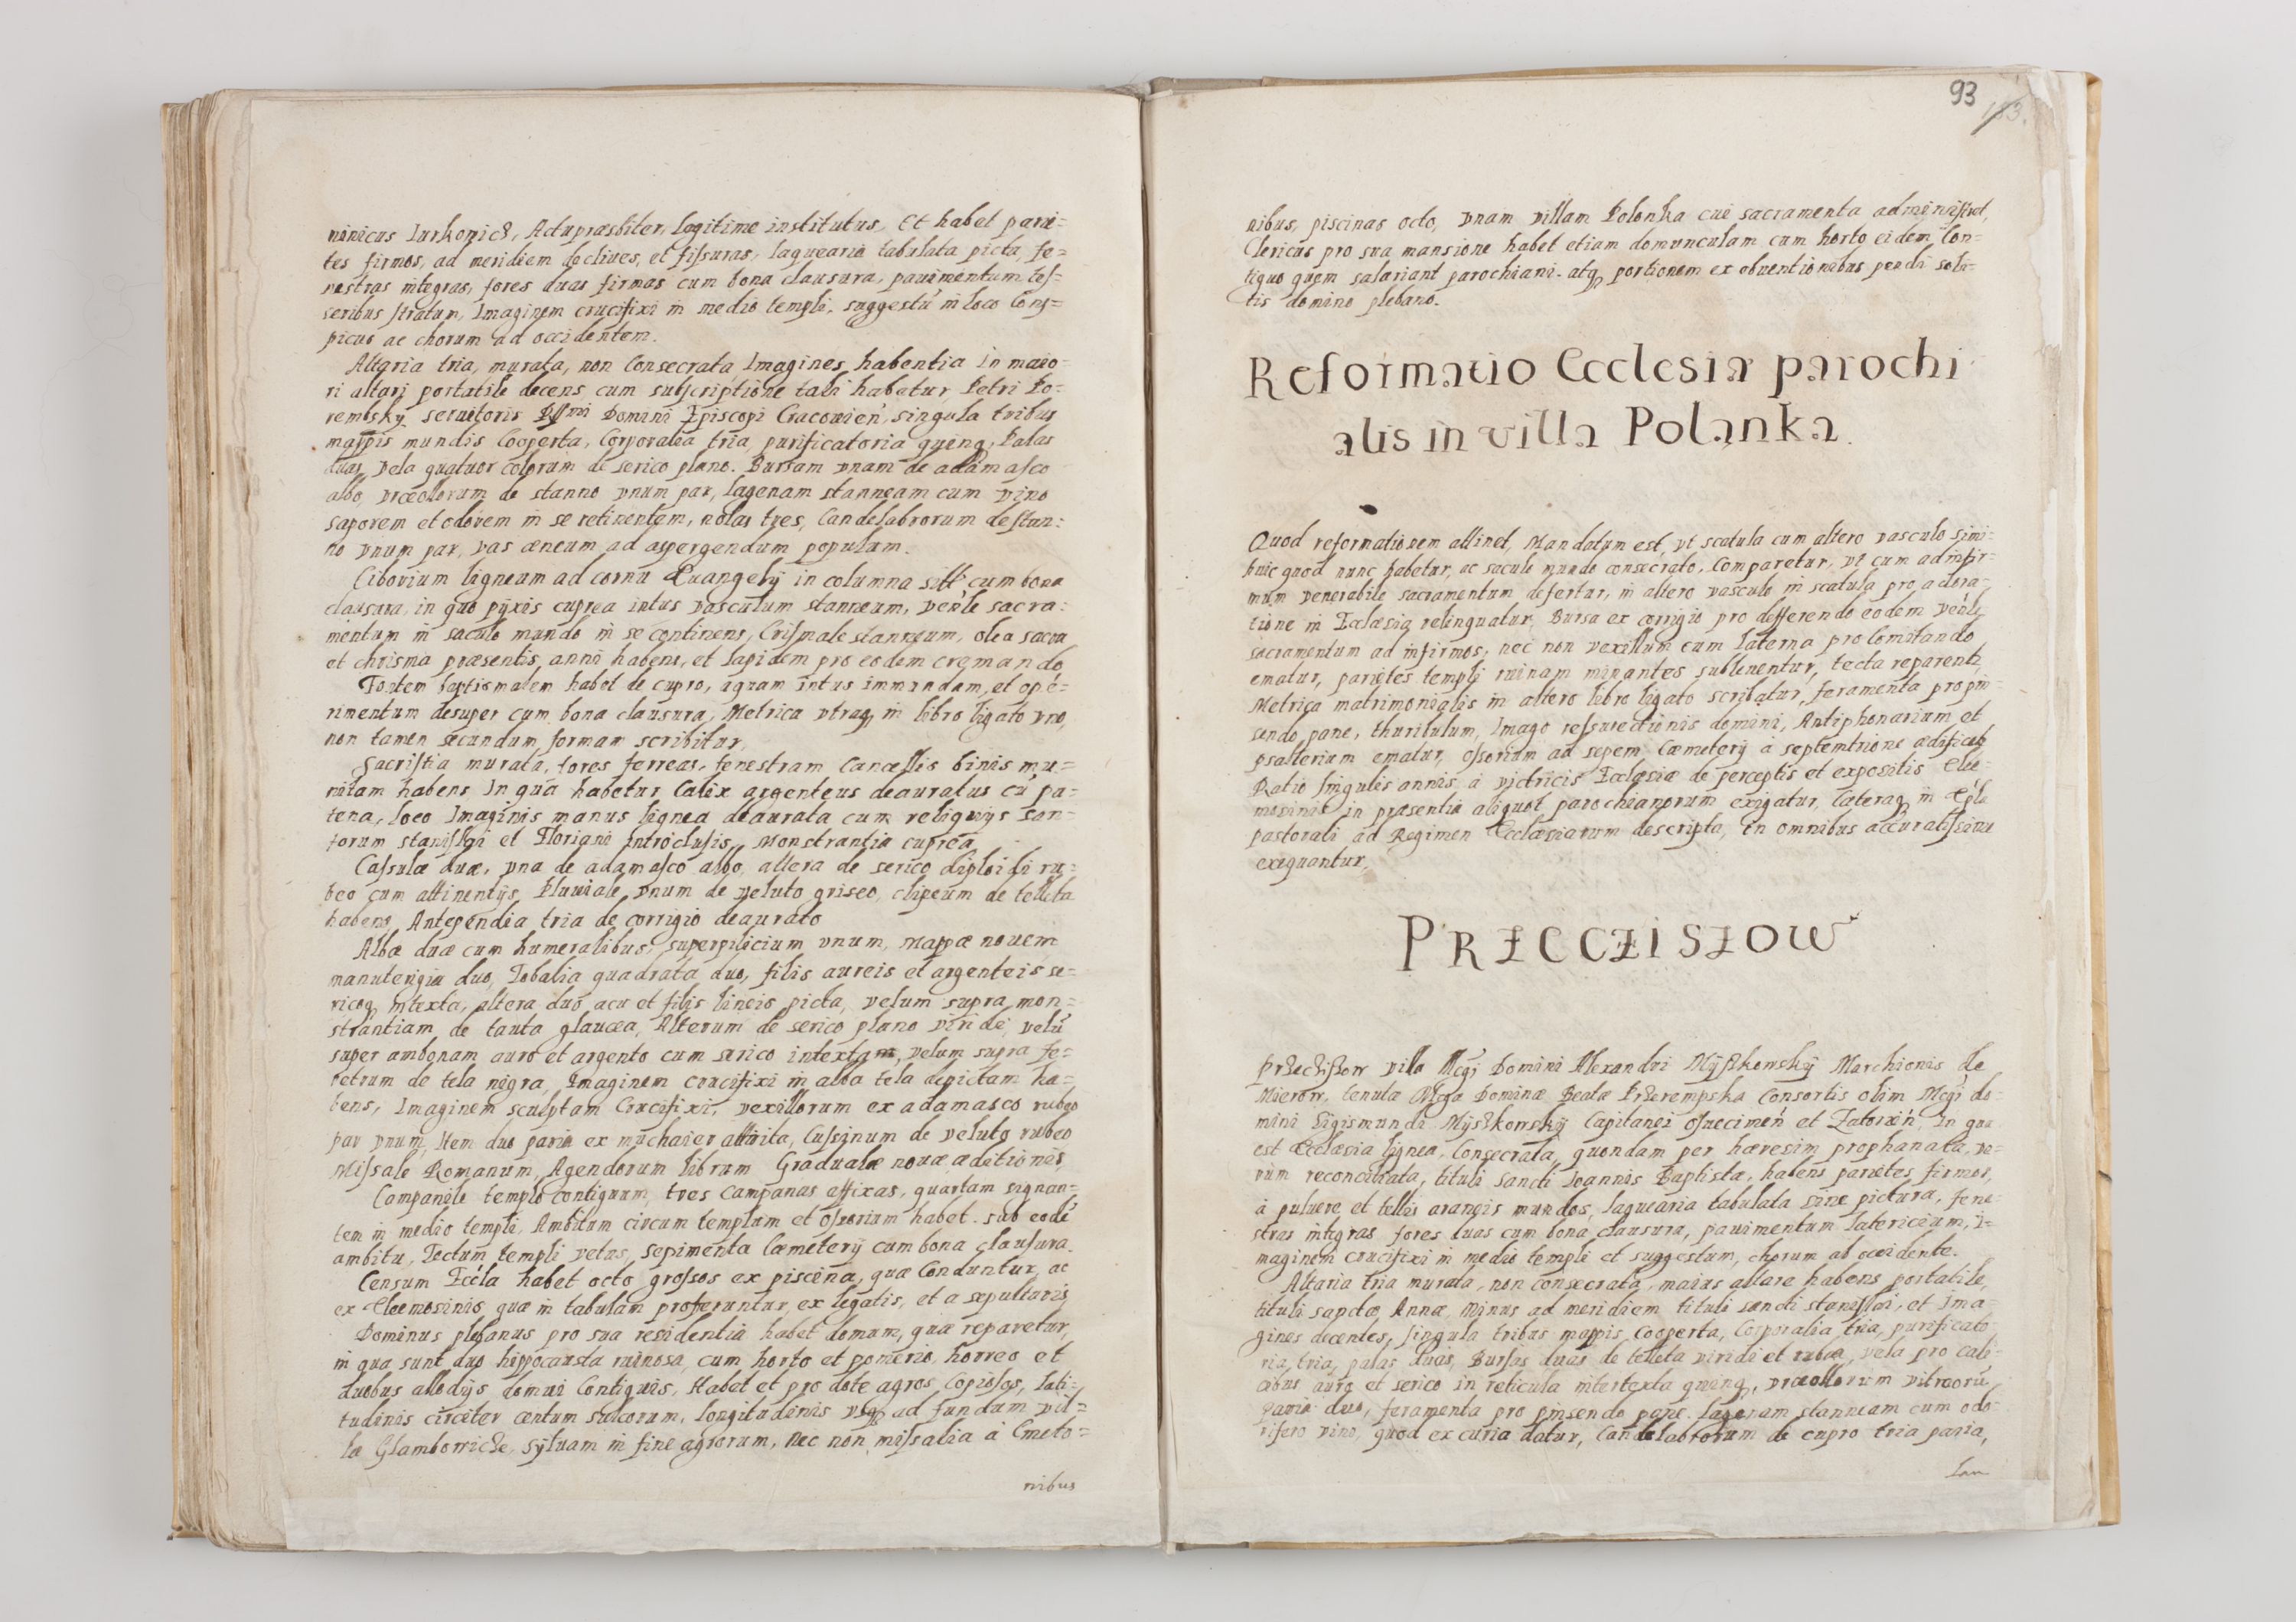 ninicus Iurkopic8, Actu prasbiter, legitime institutus, et habet parie=
tes firmos, ad meridiem decliues, et fissuras, laquearia tabulata picta, fe=
nestras integras, fores duas firmas cum bona clausura, pauimentum tes=
seribus stratum, Imaginem crucifixi in medio templi, suggestũ in loco Cons=
picuo ac chorum ad occidentem.
Altaria tria, murata, non Consecrata, Imagines habentia in maio
ri altari portatile decens cum subscriptione tali habetur, Petri Po=
rembsky seruitoris Rssmi Domini Episcopi Cracouien, singula tribus
mappis mundis Cooperta, Corporalia tria, purificatoria quinq, Palas
duas, vela quatuor Colorum de serico plano. Bursam vnam de adamasco
albo, vrceolorum de stanno vnum par, lagenam stanneam cum vino
saporem et odorem in se retinentem, nolas tres, Candelabrorum de stan:
no vnum par, vas æneum ad aspergendum populum.
Ciborium ligneum ad cornu Euangelÿ in columna sitũ cum bona
clausura, in quo pÿxis cuprea intus vasculum stanneum, venle sacra:
mentum in saculo mundo in se continens, Crismale stanneum, olea sacra
et chrisma præsentis anni habens, et lapidem pro eodem cremando
Fontem baptismalem habet de cupro, aquam intus immundam, et opé=
rimentum desuper cum bona clausura, Metrica vtraq, in libro ligato vno,
non tamen secundum formam scribitur,
Sacristia murata, fores ferreas, fenestram Cancellis binis mu=
nitam habens In qua habetur Calix argenteus deauratus cũ pa=
tena, loco Imaginis manus lignea deaurata cum reliquijs san=
torum stanislai et Floriani Introclusis, Monstrantia cuprea,
Casulæ duæ, vna de adamasco albo, altera de serico diploidi ru=
beo cum attinentijs, Pluuiale, vnum de veluto griseo, clipeum de telleta
habens, Antependia tria de corrigio deaurato
Albæ duæ cum humeralibus, superpilicium vnum, mappæ nouem
manutergia duo, Tobalia quadrata duo, filis aureis et argenteis se=
ricoq, intexta, altera duo acu et filis lineis picta, velum supra mon=
strantiam, de tanta glaucea, Alterum de serico plano viride, velũ
super ambonam auro et argento cum serico intextam, velum supra fe=
retrum de tela nigra, Imaginem crucifixi in alba tela depictam ha=
bens, Imaginem sculptam Crucifixi, vexillorum ex adamasco rubeo
par vnum, Item duo paria ex muchaier attrita, Cussinum de veluto rubeo
Missale Romanum, Agendorum librum Gradualæ nouæ æditionis,
Companile templo contiguum, tres Campanas affixas, quartam signan=
tem in medio templi, Ambitum circum templum et Ossorium habet. sub eodẽ
ambitu, Tectum templi vetus, sepimenta Cæmeterÿ cum bona clausura.
Censum Eccla habet octo grossos ex piscina, quæ Conduntur, ac
ex Eleemosinis, quæ in tabulam proferuntur, ex legatis, et a sepulturis
Dominus plebanus pro sua residentia habet domum, quæ reparetur,
in qua sunt duo hippocausta ruinosa, cum horto et pomerio, horreo et
duobus allodijs, domui Contiguis, Habet et pro dote agros Copiosos, lati=
tudinis circiter centum sulcorum, longitudinis vsq, ad fundum vil=
la Glambowic8e, sÿluam in fine agrorum, nec non missalia à Cmeto=
nibus
93
183.
nibus, piscinas octo, vnam villam Polonka cui sacramenta administrat,
Clericus pro sua mansione habet etiam domunculam cum horto eidem Con=
tiguo quem salariant parochiani. atq, portionem ex obuentionibus pendi soli=
tis domino plebano.
Reformatio Ecclesiæ parochi
alis in villa Polanka.
Quod reformationem attinet, Mandatum est, vt scatula cum altero vasculo simi=
huic quod nunc habetur, ac saculo mundo consecrato, Comparetur, vt cum ad infir=
mum venerabile sacramentum defertur, in altero vasculo in scatula pro adora=
tione in Ecclæsia relinquatur, Bursa ex corrigio pro defferendo eodem venle
sacramentum ad infirmos, nec non vexillum cum laterna pro Comitando
ematur, parietes templi ruinam minantes sublinentur, tecta reparentr
Metrica matrimonialis in altero libro ligato scribatur, feramenta pro pin=
sendo pane, thuribulum, Imago ressurectionis domini, Antiphonarium et
psalterium ematur, ossorium ad sepem Cæmeterÿ à septemtrione ædificetr
Ratio singulis annis à victricis Ecclæsiæ de perceptis et expositis Elee=
mosinis in præsentia aliquot parochianorum exigatur, Cæteraq, in Epla
pastorali ad Regimen Ecclæsiarum descripta, in omnibus accuratissime
exequantur,
PRZECCZISZOW
Pr8ec8is8ow villa Mcgi Domini Alexandri Mÿs8kowskÿ Marchionis de
Mierow, tenutæ Mcgæ Dominæ Beatæ Pr8erempska Consortis olim Mcgi do=
mini Sigismundi Mÿs8kowskÿ Capitanei Osuecimeń et Zatorien, In qua
est Ecclæsia lignea, Consecrata, quondam per hæresim prophanata, ve=
rùm reconciliata, tituli sancti Ioannis Baptistæ, habens parietes firmos,
à puluere et tellis araneis mundos, laquearia tabulata sine pictura, fene=
stras integras fores duas cum bona clausura, pauimentum latericium, i=
maginem crucifixi in medio templi et suggestum, chorum ab occidente.
Altaria tria murata, non consecrata, maius altare habens portatile,
tituli sanctæ Annæ, Minus ad meridiem tituli sancti stanislai, et Ima=
gines decentes, singula tribus mappis Cooperta, Corporalia tria, purificato=
ria, tria, palas duas, Bursas duas de telleta viridi et rubea, vela pro cali=
cibus auro et serico in reticula intertexta quinq, vrceollorum vitreorũ,
paria duo, feramenta pro pinsendo pane. lagenam stanneam cum odo=
rifero vino, quod ex curia datur, Candelabrorum de cupro tria paria,
Lan